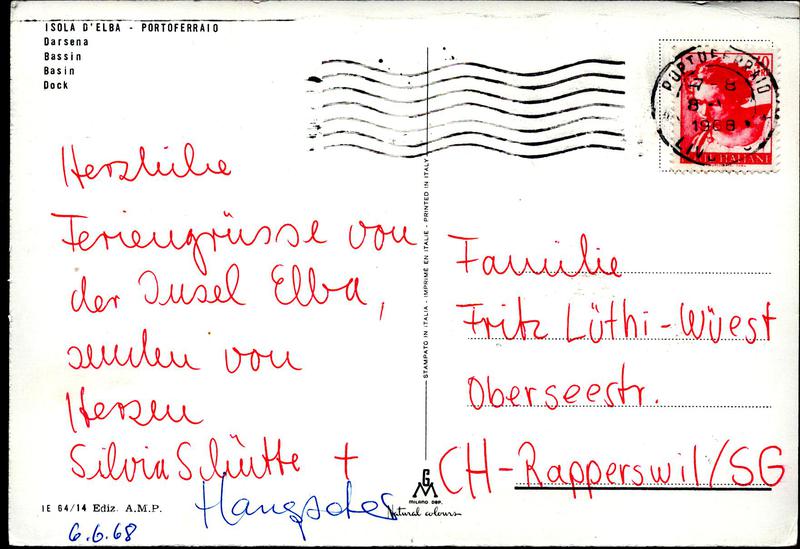 ISOLA D'ELBA - PORTOFERRAIO
Darsena
Bassin
Basin
Dock
Herzliche
Feriengrüsse von
der Insel Elba,
senden von
Herzen
Silvia Schütte +
IE 64/14 Ediz. A.M.P.
6.6.68
STAMPATO IN ITALIA - IMPRIMÉ EN ITALIE - PRINTED IN ITALY
GM
MILANO DEP.
Natural colours
PORTOFERRAIO
1968
ITALIANE
Familie
Fritz Lüthi-Wüest
Oberseestr.
CH-Rapperswil/SG